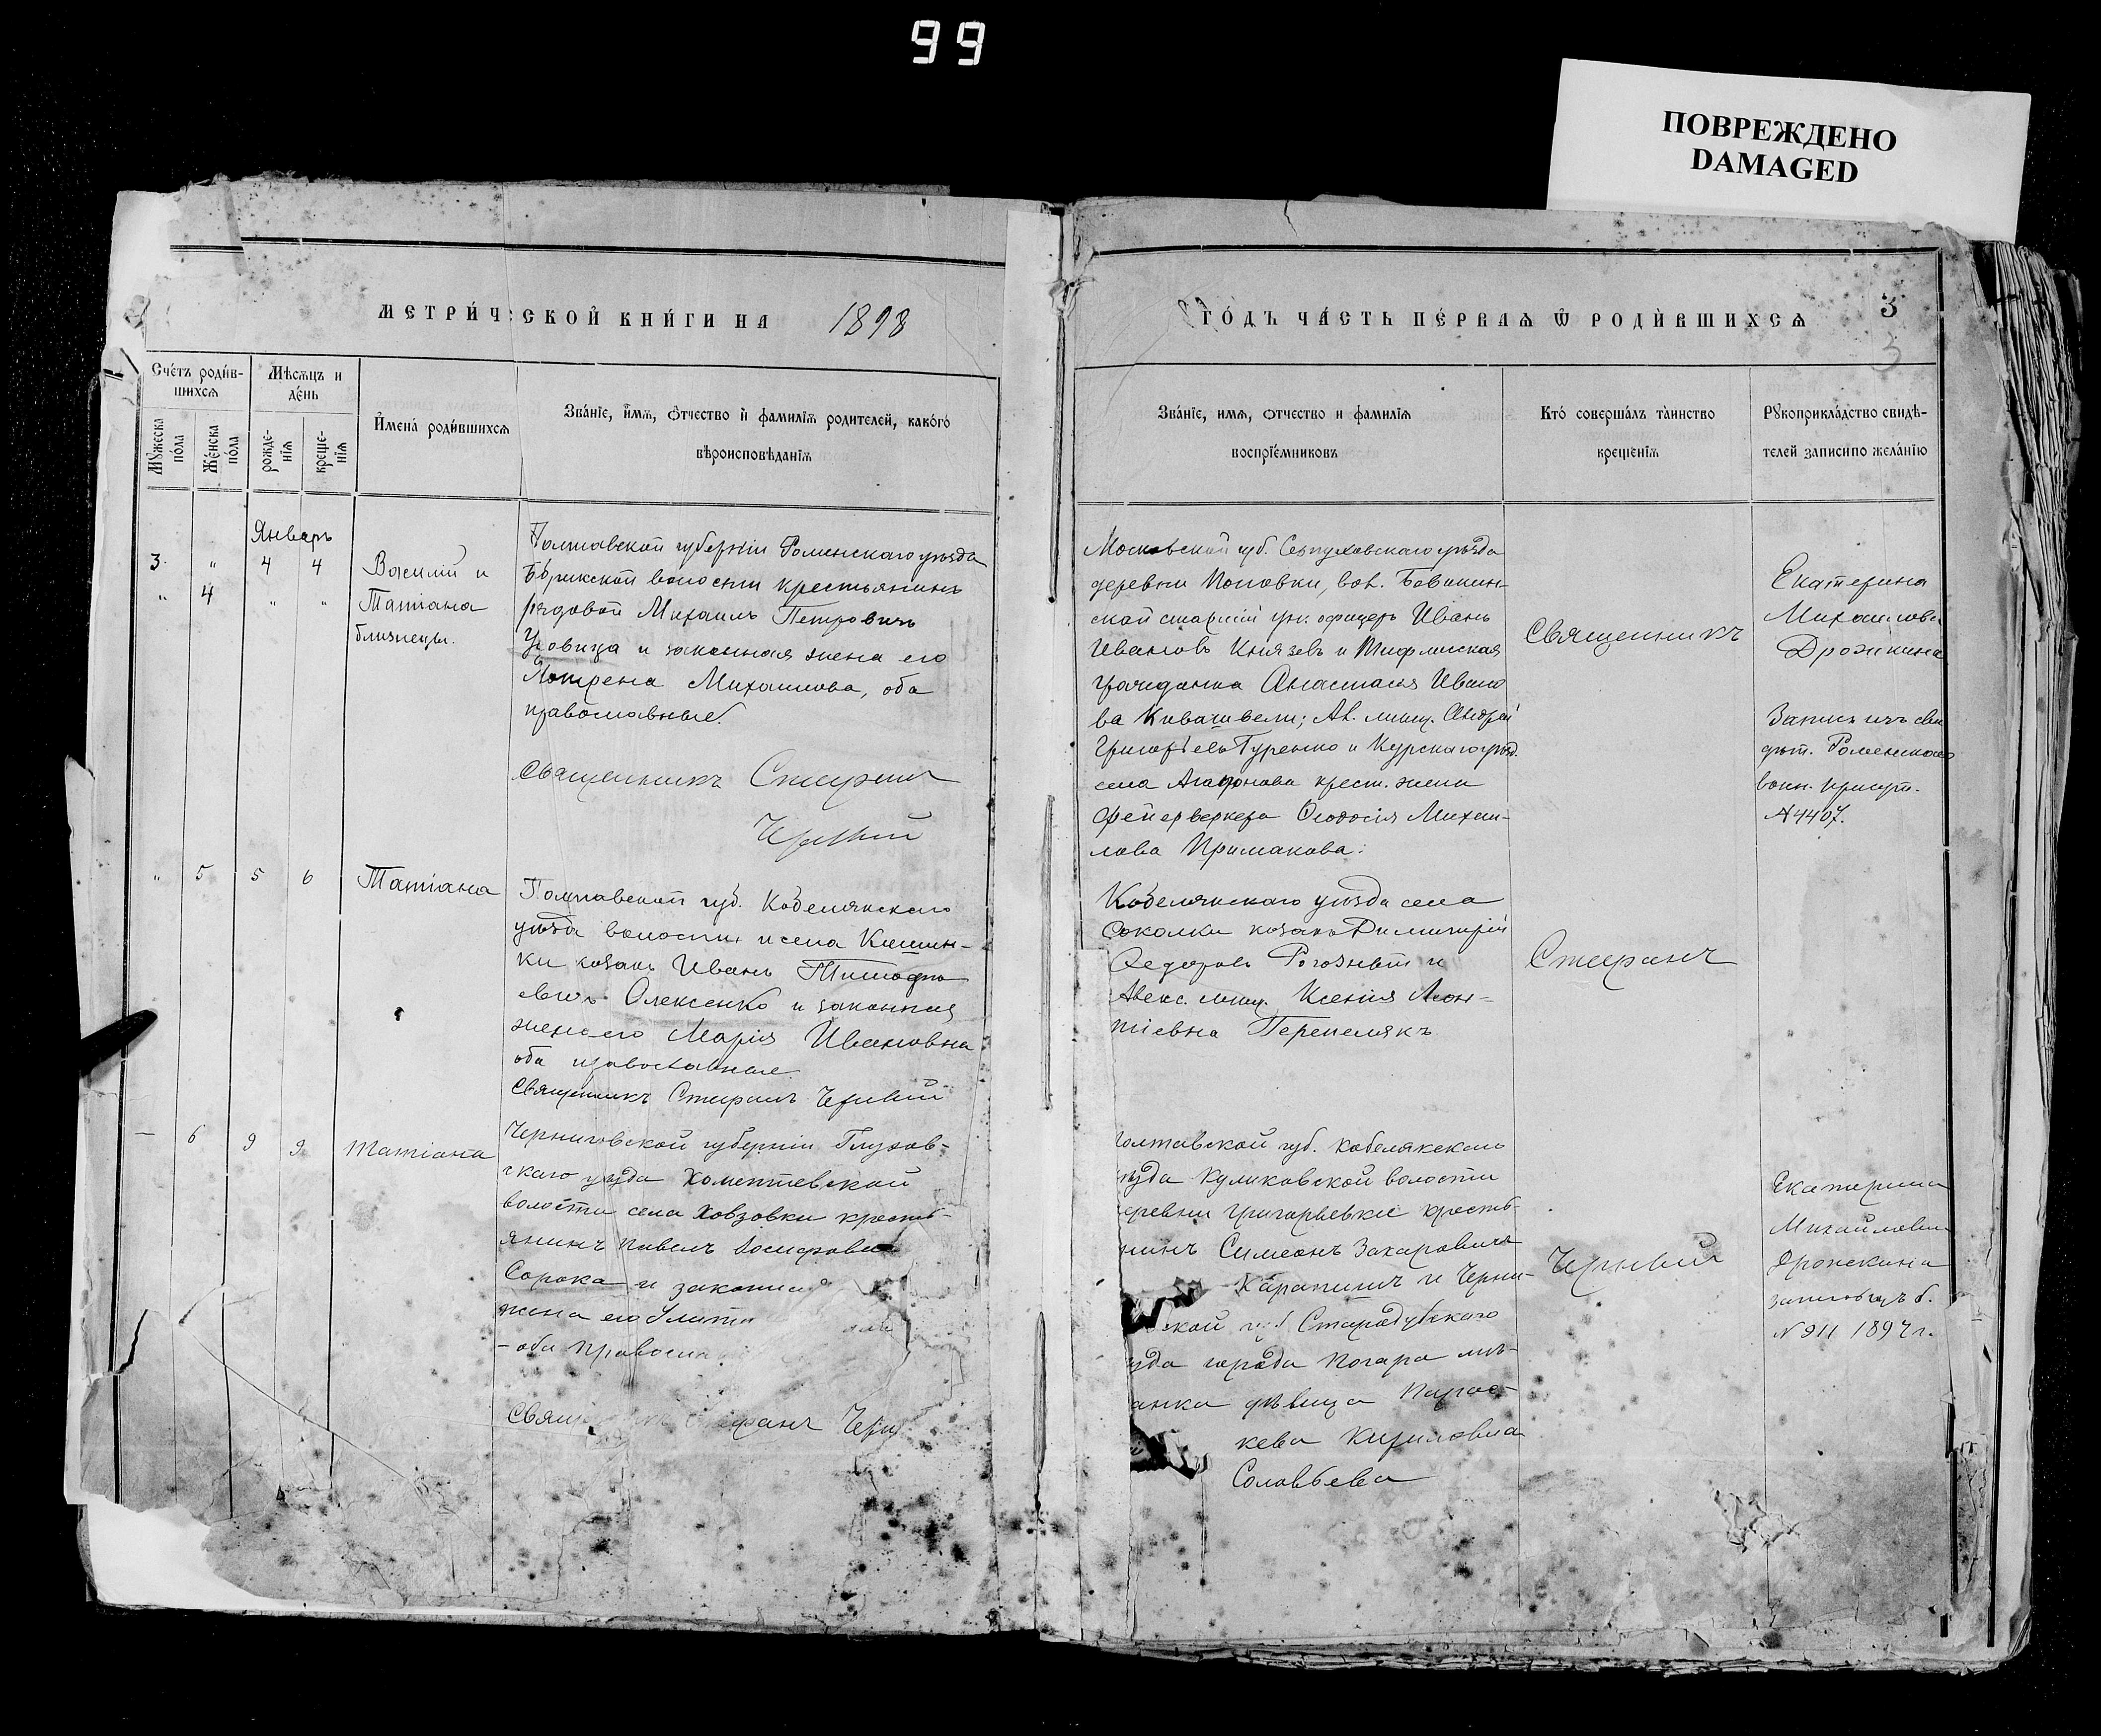 99
ПОВРЕЖДЕНО
DAMAGED
МЕТРИ́ЧЕСКОЙ КНИ́ГИ НА 1898
ГО́ДЪ ЧА́СТЬ ПЕ́РВАѦ Ѿ РОДИ́ВШИХСѦ
3
3
Сче́тъ роди́в-
шихсѧ
Мѣсѧцъ и
де́нь
Мꙋжеска по́ла
Же́нска по́ла
рожде-
нїѧ
креще-
нїѧ
Имена̀ роди́вшихсѧ
Зва́нїе, имѧ, ѻтчество и фамилїѧ родителей, како́гѡ
вѣроисповѣданїѧ
Зва́нїе, имѧ, ѻтчество и фамилїѧ
воспрїе́мниковъ
Кто̀ соверша́лъ та̀инство
креще́нїѧ
Рꙋкоприкла́дство свидѣ-
телей записи по жела́нїю
Январь
3. " 4 4
" 4 " "
Василій и
Татіана
близнецы.
Полтавской губерніи Роменскаго уѣзда
волости крестьянинъ
рядовой Михаилъ Петровичъ
и законная жена его
Михаилова, оба
православные.
Священникъ Стефанъ
Черній
Московской губ. Серпуховскаго уѣзда
деревни Поповки, вол.
ской старшій ун. офицеръ Иванъ
Ивановъ Князевъ и Тифлисская
гражданка Анастасія Ивано
ва Ал. мѣщ. Андрей
Григорьевъ Гуренко и Курскаго уѣзд.
села крест. жена
фейерверкера Ѳеодосія Михаи-
лова Примакова.
Священникъ
Екатерина
Михаилова
Дрожкина
Запись изъ сви
дѣт. Роменскаго
воин. присут.
№ 4407.
" 5 5 6
Татіана
Полтавской губ. Кобелякскаго
уѣзда волости и села Кишин-
ки козакъ Иванъ Тимофѣ
евичъ Олексенко и законная
жена его Марія Ивановна
оба православные.
Священникъ Стефанъ Черній
Кобелякскаго уѣзда села
Соколки козакъ Димитрій
Федоровъ Рогозный и
Алекс. мѣщ. Ксенія Леон-
тіевна Перепелякъ
Стефанъ
— 6 9 9
Татіана
Черниговской губерніи Глухов-
скаго уѣзда
волости села Ховзовки кресть-
янинъ Павелъ Іосифовъ
Сорока и законна
жена его
- оба правосла
Свящ фанъ Черн
олтавской губ. Кобелякскаго
ѣзда Куликовской волости
еревни Григорьевки кресть-
нинъ Симеонъ Захаровичъ
и Черни-
ской губ Стародубскаго
ѣзда города Погара мѣ-
анка дѣвица Парас-
кева Кириловна
Соловьева
Черній
Екатерина
Михайловна
Дрожкина
№ 911 1897 г.